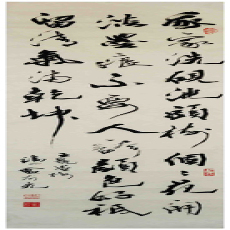 我家洗硯池頭樹個個花開
淡墨痕不要人誇顏色好祇
留清氣滿乾坤